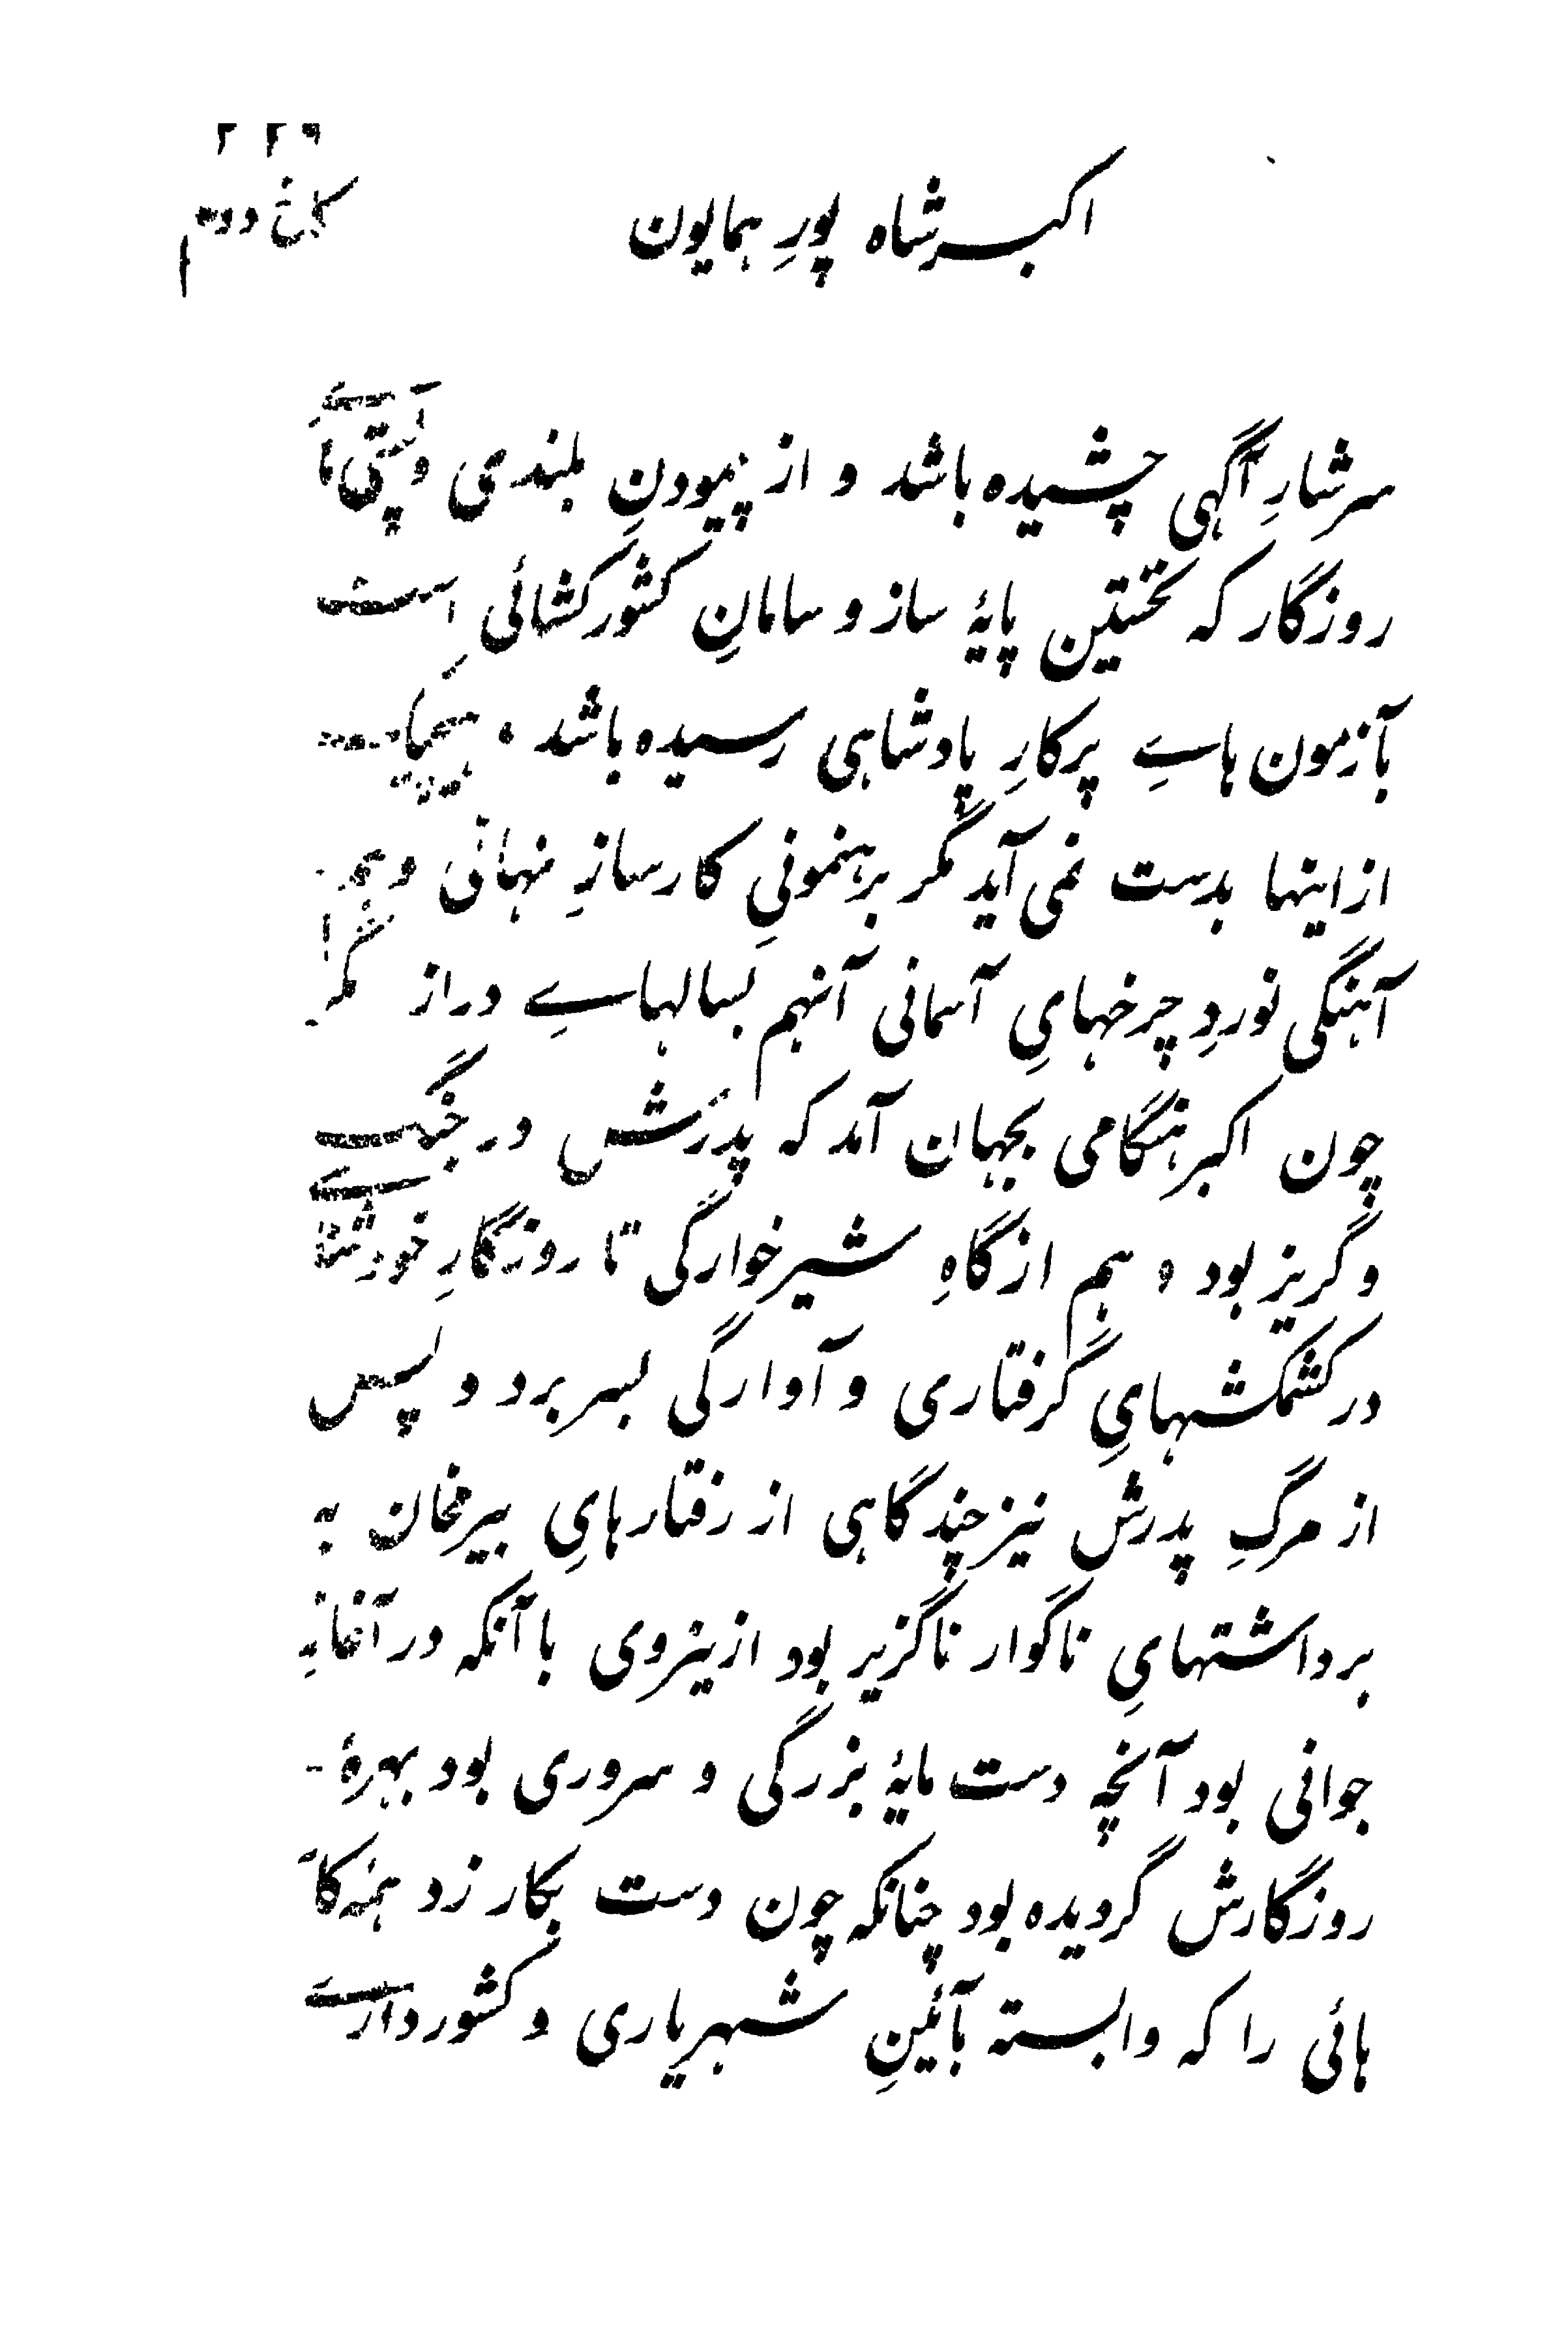 ۲۴۹
کاخ دوم
اکبرشاه پورِ همایون
سرشارِ آگهی چشیده باشد و از پیمودنِ بلندی و پستی‌هاے
روزگار که نخستین پایهٔ ساز و سامانِ کشورکشائی است
بآزمون هاے پرکارِ پادشاهی رسیده باشد ۰ هیچیک
از اینها بدست نمی آید مگر برهنمونیِ کارسازِ نهانی و هم
آهنگی نوردِ چرخهایِ آسمانی آنهم بسالهاے دراز مگر
چون اکبر هنگامی بجهان آمد که پدرش در جنگ
و گریز بود ۰ هم از گاهِ شیرخوارگی تا روزگارِ خودشناسے
در کشمکشهایِ گرفتاری و آوارگی بسر برد و پس
از مرگِ پدرش نیز چند گاهی از رفتارهایِ بیرمخان به
برداشتهایِ ناگوار ناگزیر بود ازینروی با آنکه در آغازِ
جوانی بود آنچه دست مایهٔ بزرگی و سروری بود بهرهٔ
روزگارش گردیده بود چنانکه چون دست بکار زد همه کا
هائی را که وابسته بآئینِ شهریاری و کشورداری